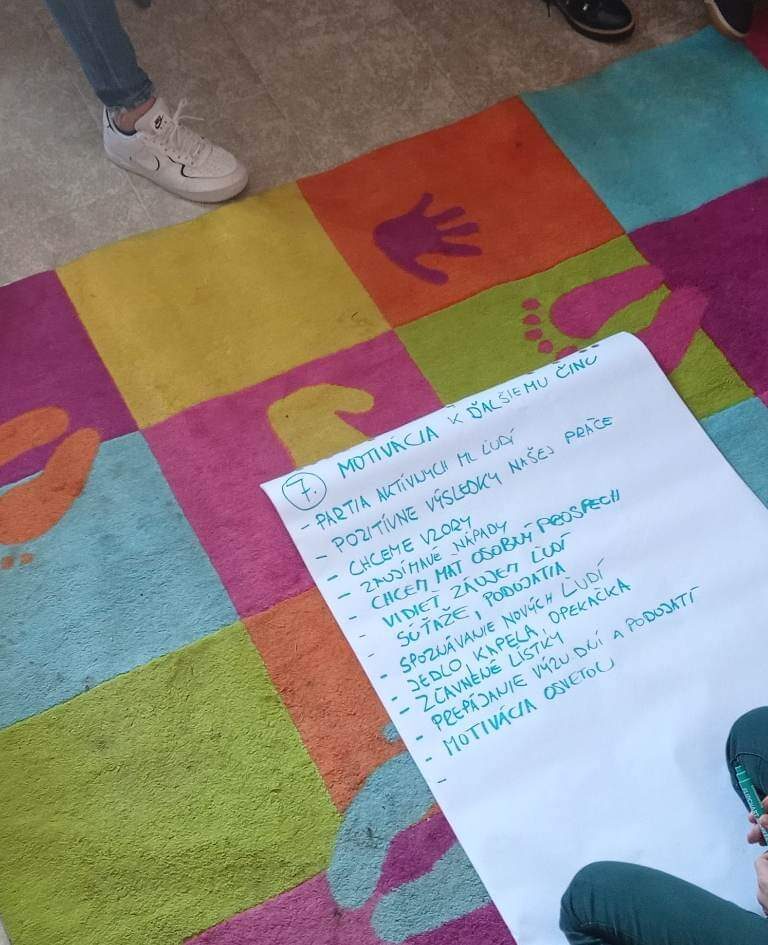 7. MOTIVÁCIA K ĎALŠIEMU ČINU
- PARTIA AKTÍVNYCH ML ĽUDÍ
- POZITÍVNE VÝSLEDKY NAŠEJ PRÁCE
- CHCEME VZORY
- ZAUJÍMAVÉ NÁPADY
- CHCEM MAŤ OSOBNÝ PROSPECH
- VIDIEŤ ZÁUJEM ĽUDÍ
- SÚŤAŽE, PODUJATIA
- SPOZNÁVANIE NOVÝCH ĽUDÍ
- JEDLO, KAPELA, OPEKAČKA
- ZĽAVNENÉ LÍSTKY
- PREPÁJANIE VÝZV DNÍ A PODUJATÍ
- MOTIVÁCIA OSVETOU
-